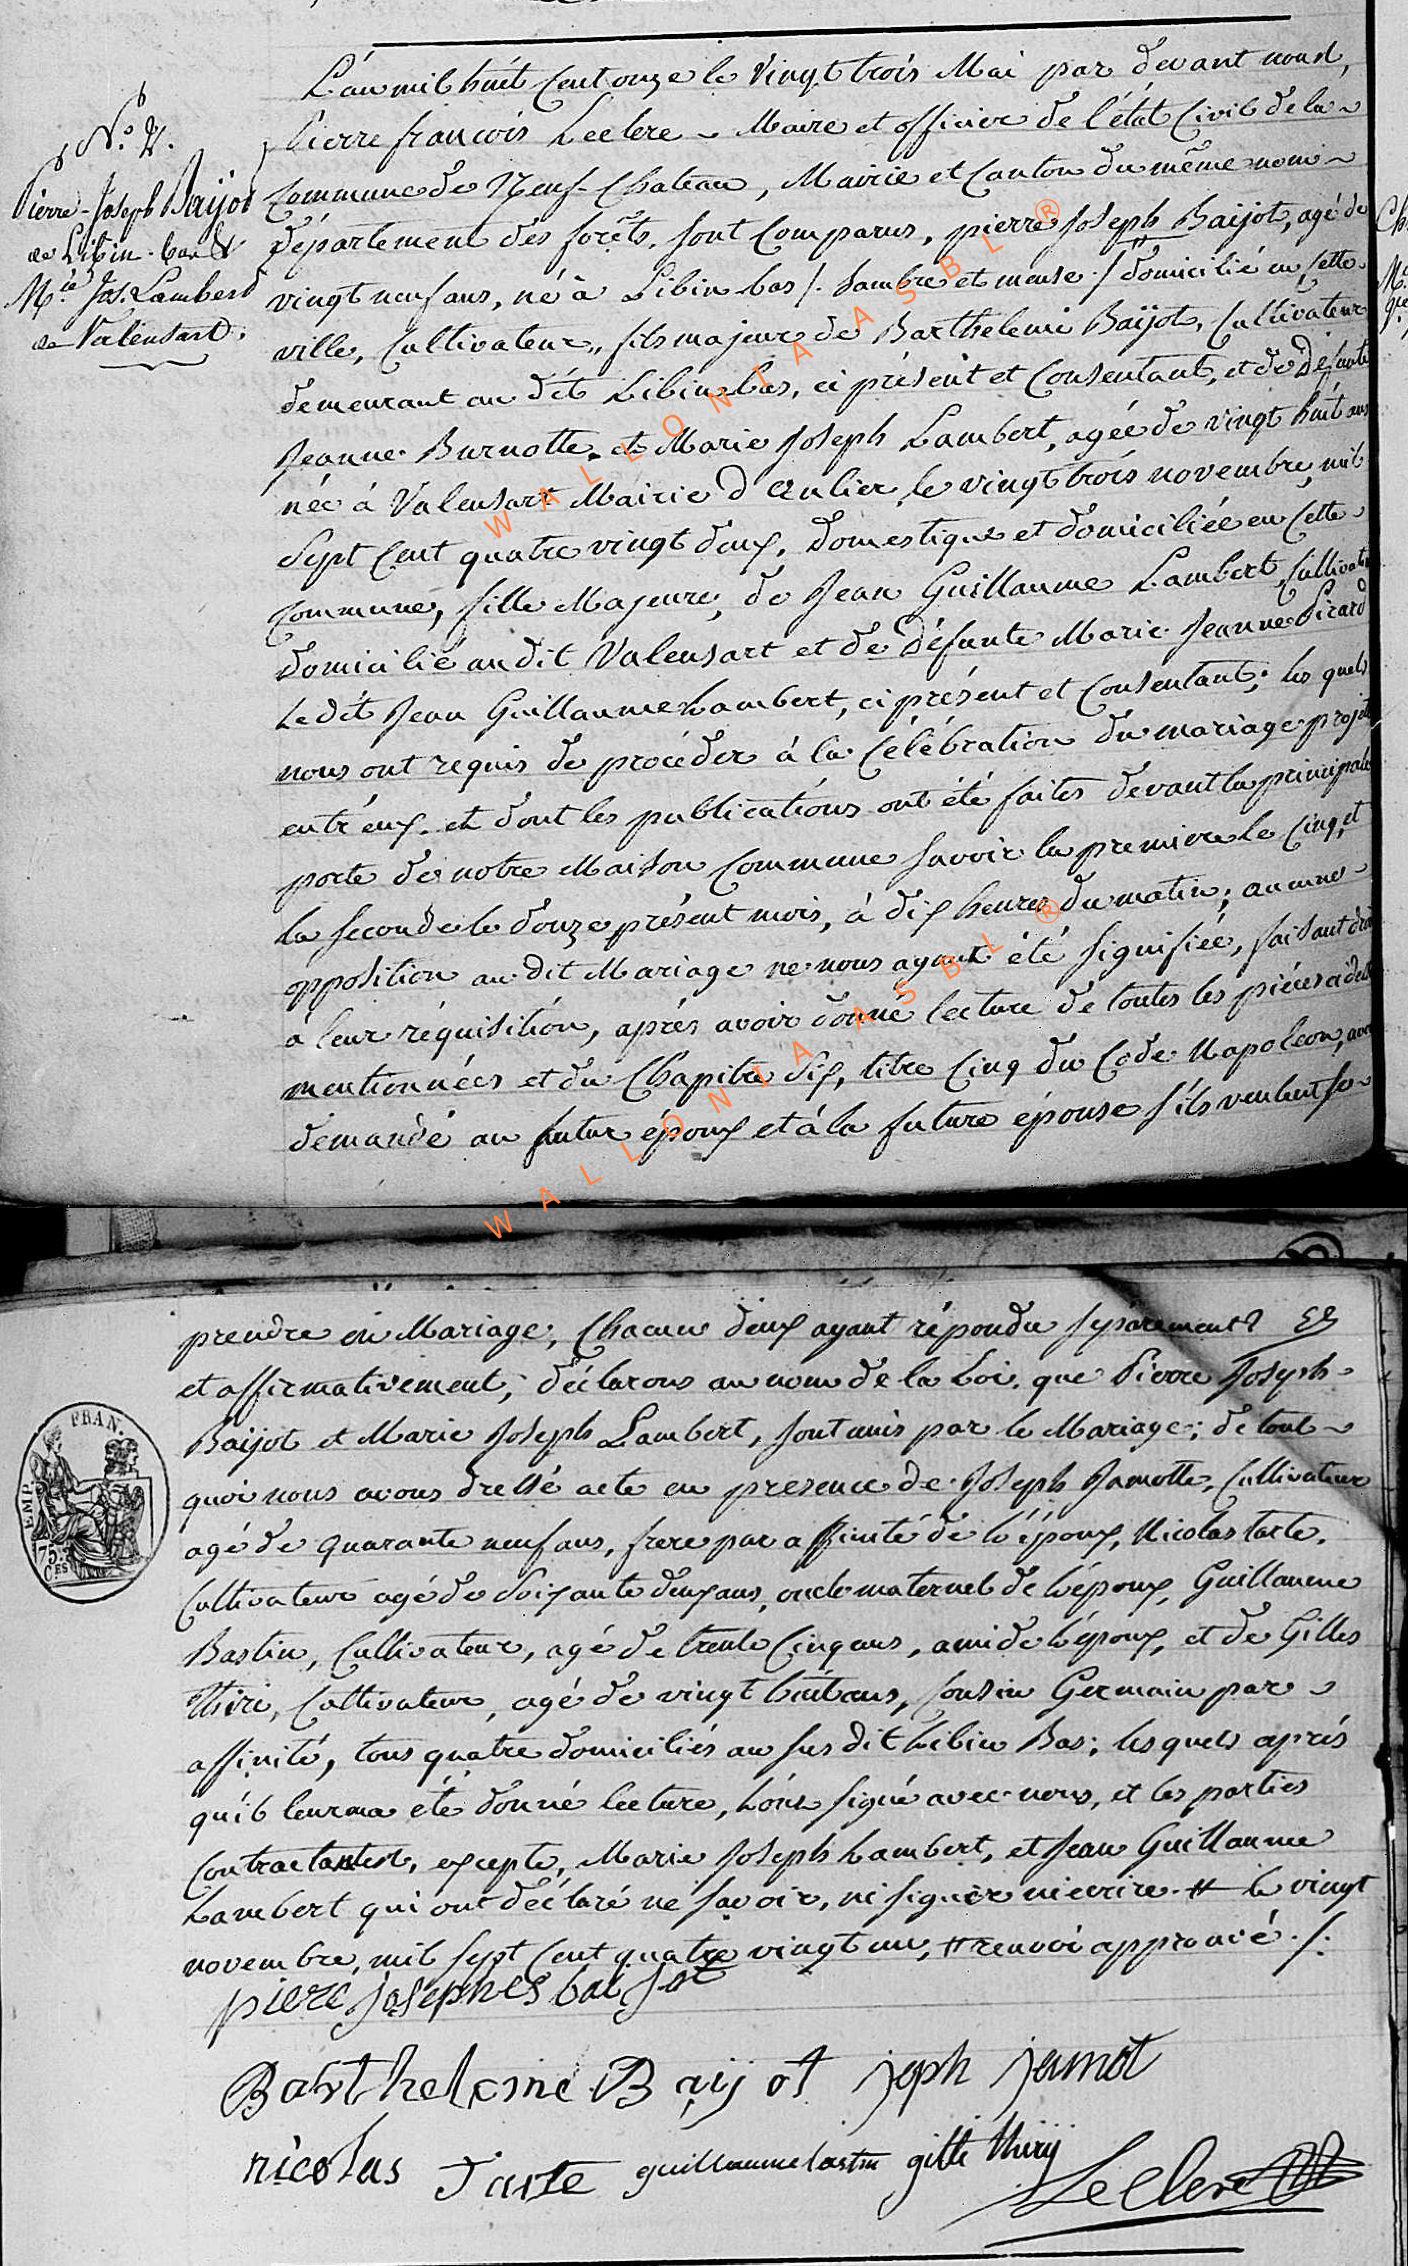 N.° 4.
Pierre-Joseph Baijot
de Libin-bas &
M.ie Jos. Lambert
de Valensart.
L'an mil huit Cent onze le vingt trois Mai par devant nous,
Pierre françois Leclere ~ Maire et officier de l'état Civil de la ~
Commune de Neuf-Chateau, Mairie et Canton du même nom ~
département des forêts, sont Comparus, pierre Joseph Baijot, agé de
vingt neuf ans, né à Libin bas /. Sambre et meuse ./ # domicilié en cette
ville, Cultivateur, fils majeur de Barthelemi Baijot, Cultivateur
demeurant au dit Libin bas, ci présent et Consentant, et de Défunte
Jeanne Burnotte. et Marie Joseph Lambert, agée de vingt huit ans
née à Valensart Mairie d'anlier, le vingt trois novembre, mil
Sept Cent quatre vingt deux, domestique et domiciliée en Cette
Commune, fille Majeure, de Jean Guillaume Lambert, Cultivateur
domicilié au dit Valensart et de Défunte Marie Jeanne Pirard
Le dit Jean Guillaume Lambert, ci présent et Consentant; les quels
nous ont requis de procéder à la Célébration du mariage projeté
entr'eux. et dont les publications ont été faites devant la principale
porte de notre Maison Commune Savoir la premiere le Cinq, et
la seconde le douze, présent mois, à dix heures du matin; aucune
opposition au dit Mariage ne nous ayant été signifiée, faisant droit
à leur réquisition, après avoir donné lecture de toutes les piéces cidess
mentionnées et du Chapitre six, titre Cinq du Code Napoleon, avons
demandé au futur époux et à la future épouse s'ils veulent se
prendre en Mariage, Chacun d'eux ayant répondu séparement
et affirmativement; déclarons au nom de la Loi, que Pierre Joseph
Baijot et Marie Joseph Lambert, sont unis par le Mariage; de tout ~
quoi nous avons dressé acte en presence de Joseph Jamotte, Cultivateur
agé de quarante neuf ans, frere par affinité de l'époux, Nicolas tarte,
Cultivateur agé de soixante deux ans, oncle maternel de l'époux, Guillaume
Bastin, Cultivateur, agé de trente Cinq ans, ami de l'époux, et de Gilles
thiri, Cultivateur, agé de vingt huit ans, Cousin Germain par ~
affinité, tous quatre domiciliés au sus dit Libin Bas; les quels après
qu'il leur en a été donné lecture, l'ont signé avec nous, et les parties
Contractantes, excepté, Marie Joseph Lambert, et Jean Guillaume
Lambert qui ont déclaré ne savoir, ni signer ni ecrire. # le vingt
novembre, mil sept Cent quatre vingt un, # renvoi approuvé ./.
EMP. FRAN.
75.
CES
piere josephes baijot
Barthelemie Baijot joph jamot
nicolas Tarte guillaume bastin gille thirij
Leclere
WALLONIA ASBL ®
WALLONIA ASBL ®